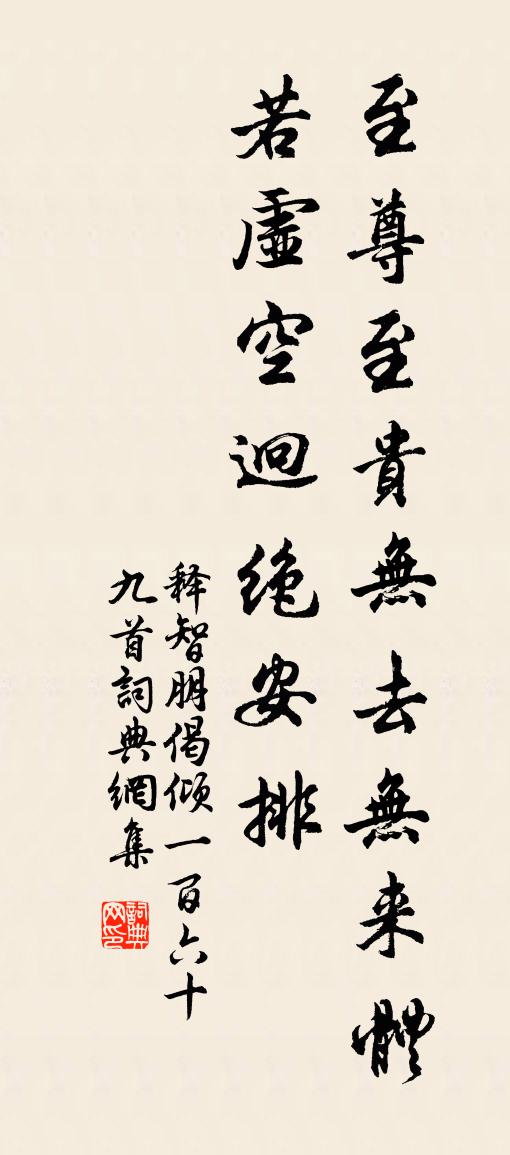 至尊至貴無去無来體
若虛空迥絶安排
释智朋偈倾一百六十
九首詞典網集
詞典网印